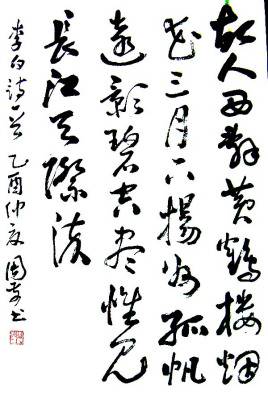 故人西辞黄鹤楼烟
花三月下揚州孤帆
遠影碧空尽惟见
長江天際流
李白詩一首 乙酉仲夏 书